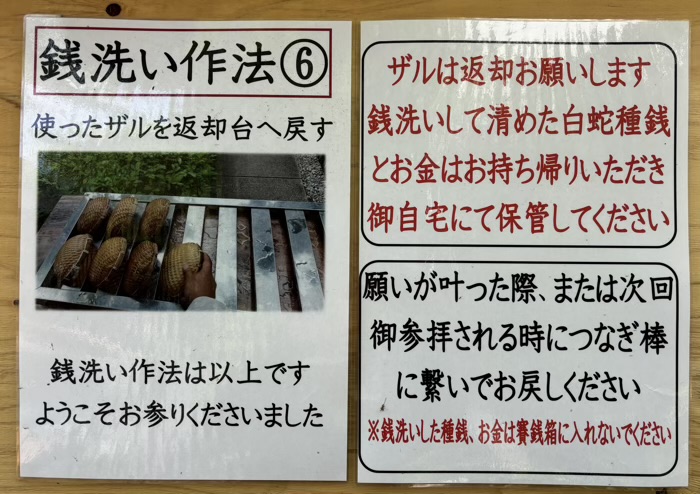 銭洗い作法⑥
使ったザルを返却台へ戻す
銭洗い作法は以上です
ようこそお参りくださいました
ザルは返却お願いします
銭洗いして清めた白蛇種銭
とお金はお持ち帰りいただき
御自宅にて保管してください
願いが叶った際、または次回
御参拝される時につなぎ棒
に繋いでお戻しください
※銭洗いした種銭、お金は賽銭箱に入れないでください